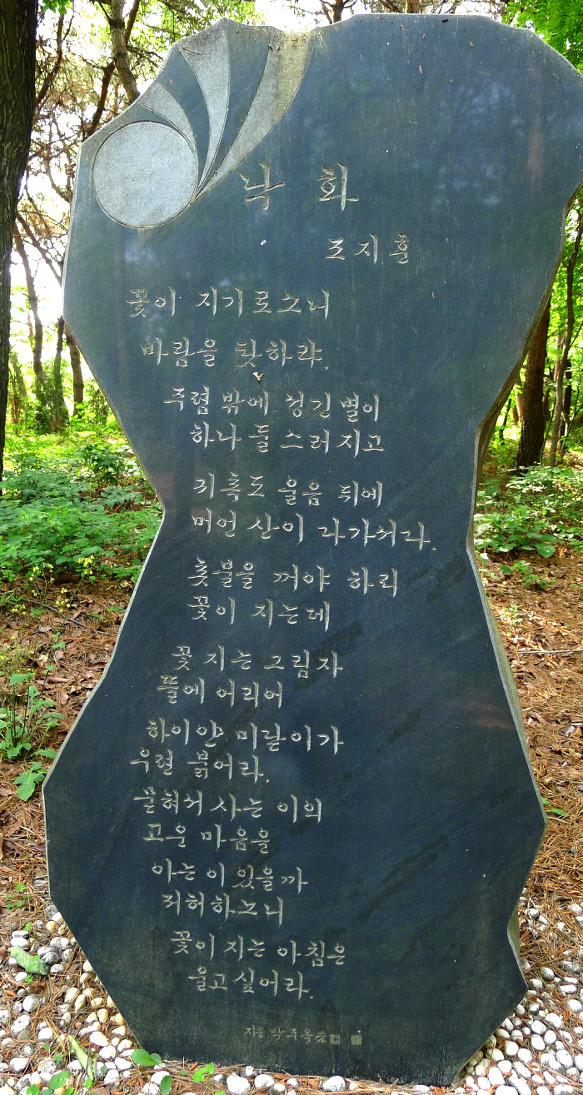 낙 화
조지훈
꽃이 지기로소니
바람을 탓하랴.
주렴 밖에 성긴 별이
하나 둘 스러지고
귀촉도 울음 뒤에
머언 산이 다가서다.
촛불을 꺼야 하리
꽃이 지는데
꽃 지는 그림자
뜰에 어리어
하이얀 미닫이가
우련 붉어라.
묻혀서 사는 이의
고운 마음을
아는 이 있을까
저허하노니
꽃이 지는 아침은
울고 싶어라.